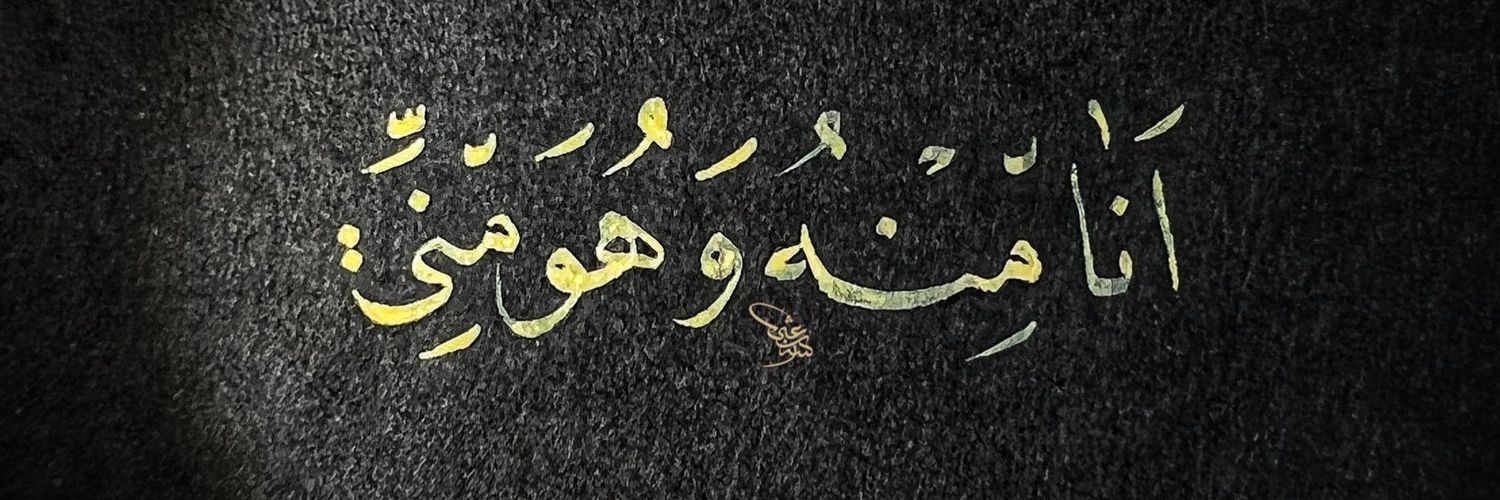 اَنَا۠ مِنْهُ وَ هُوَ مِنِّي